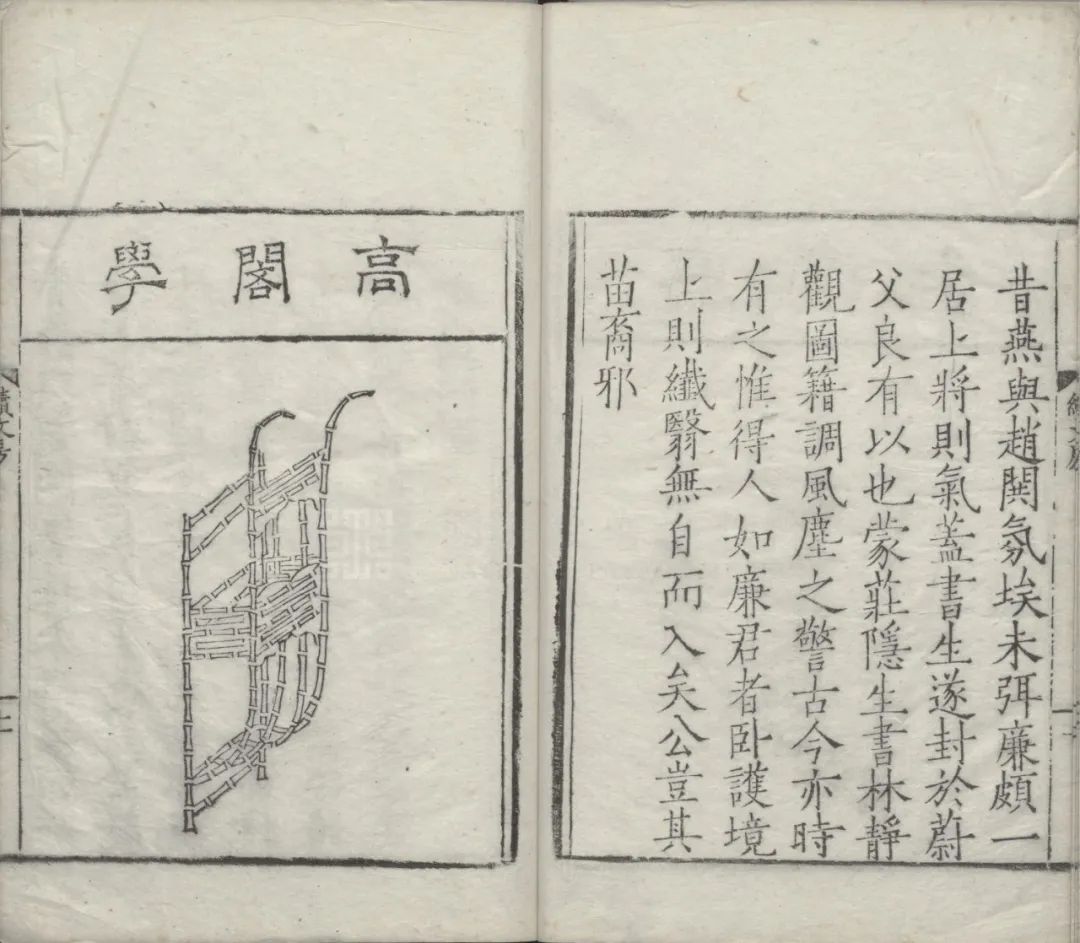 昔燕與趙鬪氛埃未弭廉頗一
居上將則氣蓋書生遂封於蔚
父良有以也蒙莊隱生書林靜
觀圖籍調風塵之警古今亦時
有之惟得人如廉君者卧護境
上則纖翳無自而入矣公豈其
苗裔邪
高閣學